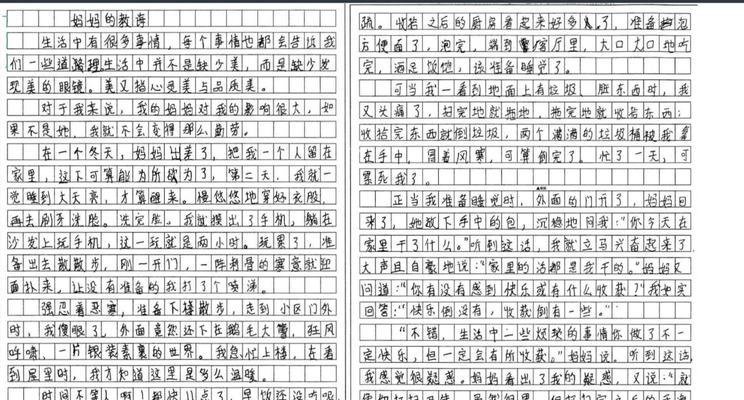 妈妈的教诲
生活中有很多事情，每个事情也都会告诉我
们一些道理生活中并不是缺少美，而是缺少发
现美的眼镜。美又指心灵美与品质美。
对于我来说，我的妈妈对我的影响很大，如
果不是她，我就不会变得那么勤劳。
在一个冬天，妈妈出差了，把我一个人留在
家里，这下可算能为所欲为了，第二天，我就一
觉睡到大天亮，才算醒来。慢悠悠地穿好衣服，
再去刷牙洗脸。洗完脸。我就摸出了手机，躺在
沙发上玩手机，这一玩就是两小时。玩累了，准
备出去散散步，刚一开门，一阵刺骨的寒意就迎
面扑来，让没有准备的我打了个喷涕。
强忍着恶寒，准备下楼散步，走到小区门外
时，我傻眼了，外面竟然还下在鹅毛大雪，狂风
呼啸，一片银装素裹的世界。我急忙上楼，在看
到屋里时，我才知道这里是多么温暖。
时间不等人啊！都快11点了，早饭还没吃呢
疏。收拾之后的厨房看起来好多了，准备
方便面了，泡完，端到客厅里，大口大口地吃
完，酒足饭饱，该准备睡觉了。
可当我一看到地面上有垃圾、脏东西时，我
又头痛了，扫完地就拖地，拖完地就收拾东西：
收拾完东西就倒垃圾，两个满满的垃圾桶被我拿
在手中。冒着风寒，可算倒完了。忙了一天，可
累死我了。
正当我准备睡觉时，外面的门开了，妈妈回
来了，她放下手中的包，沉稳地问我：“你今天在
家里干了什么。”听到这话，我就立马兴奋起来了
大声且自豪地说：“家里的活都是我干的。”妈妈又
问道：“你有没有感到快乐或有什么收获？”我如实
回答：“快乐倒没有，收获倒有一些。”
“不错，生活中一些烦琐的事情你做了不一
定快乐，但一定会有所收获。”妈妈说。听到这话
我感觉很疑惑。妈妈看出了我的疑惑，又说：“就